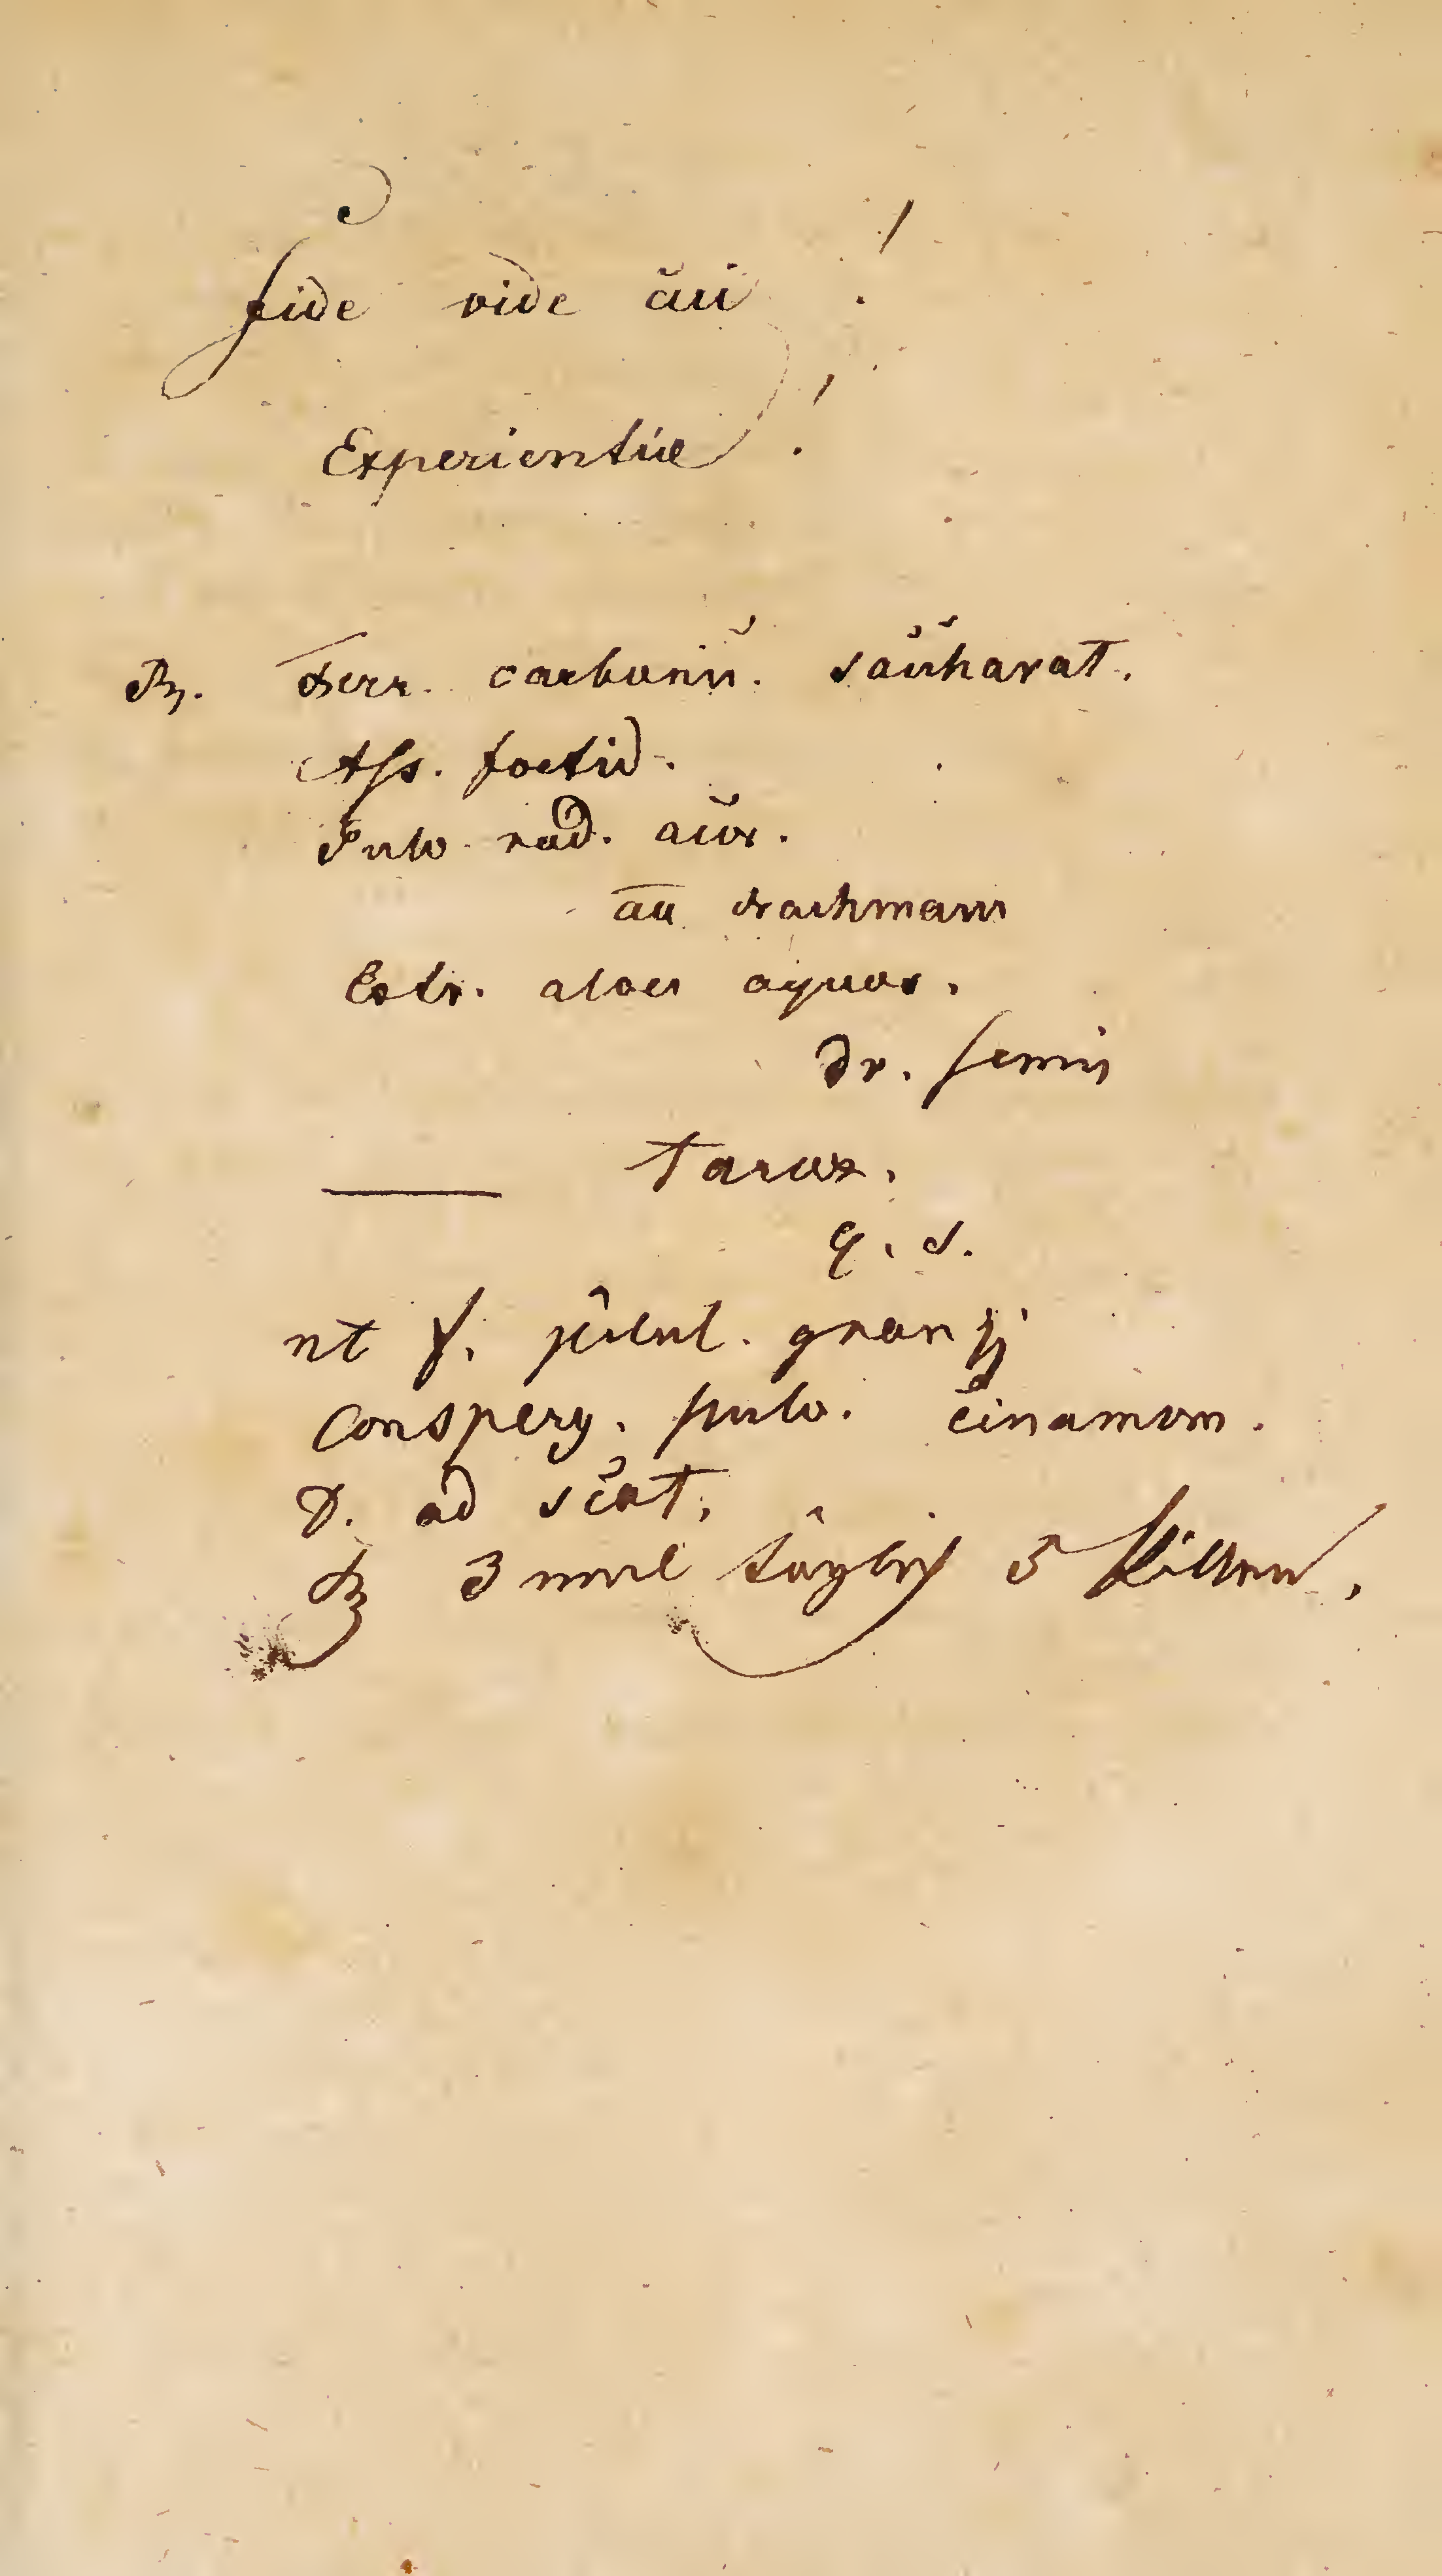 Fide vide aü !
Experientiæ !
Rp. Ferr. carbonic. sacharat.
Ass. foetid.
Pulv. rad. aur.
aa drachmam
Extr. aloes aquos.
dr. semis
— Tarax.
q. s.
ut f. pilul. gran ij
Consperg. pulv. cinamom.
D. ad scat.
3 mal täglich 5 Pillen.